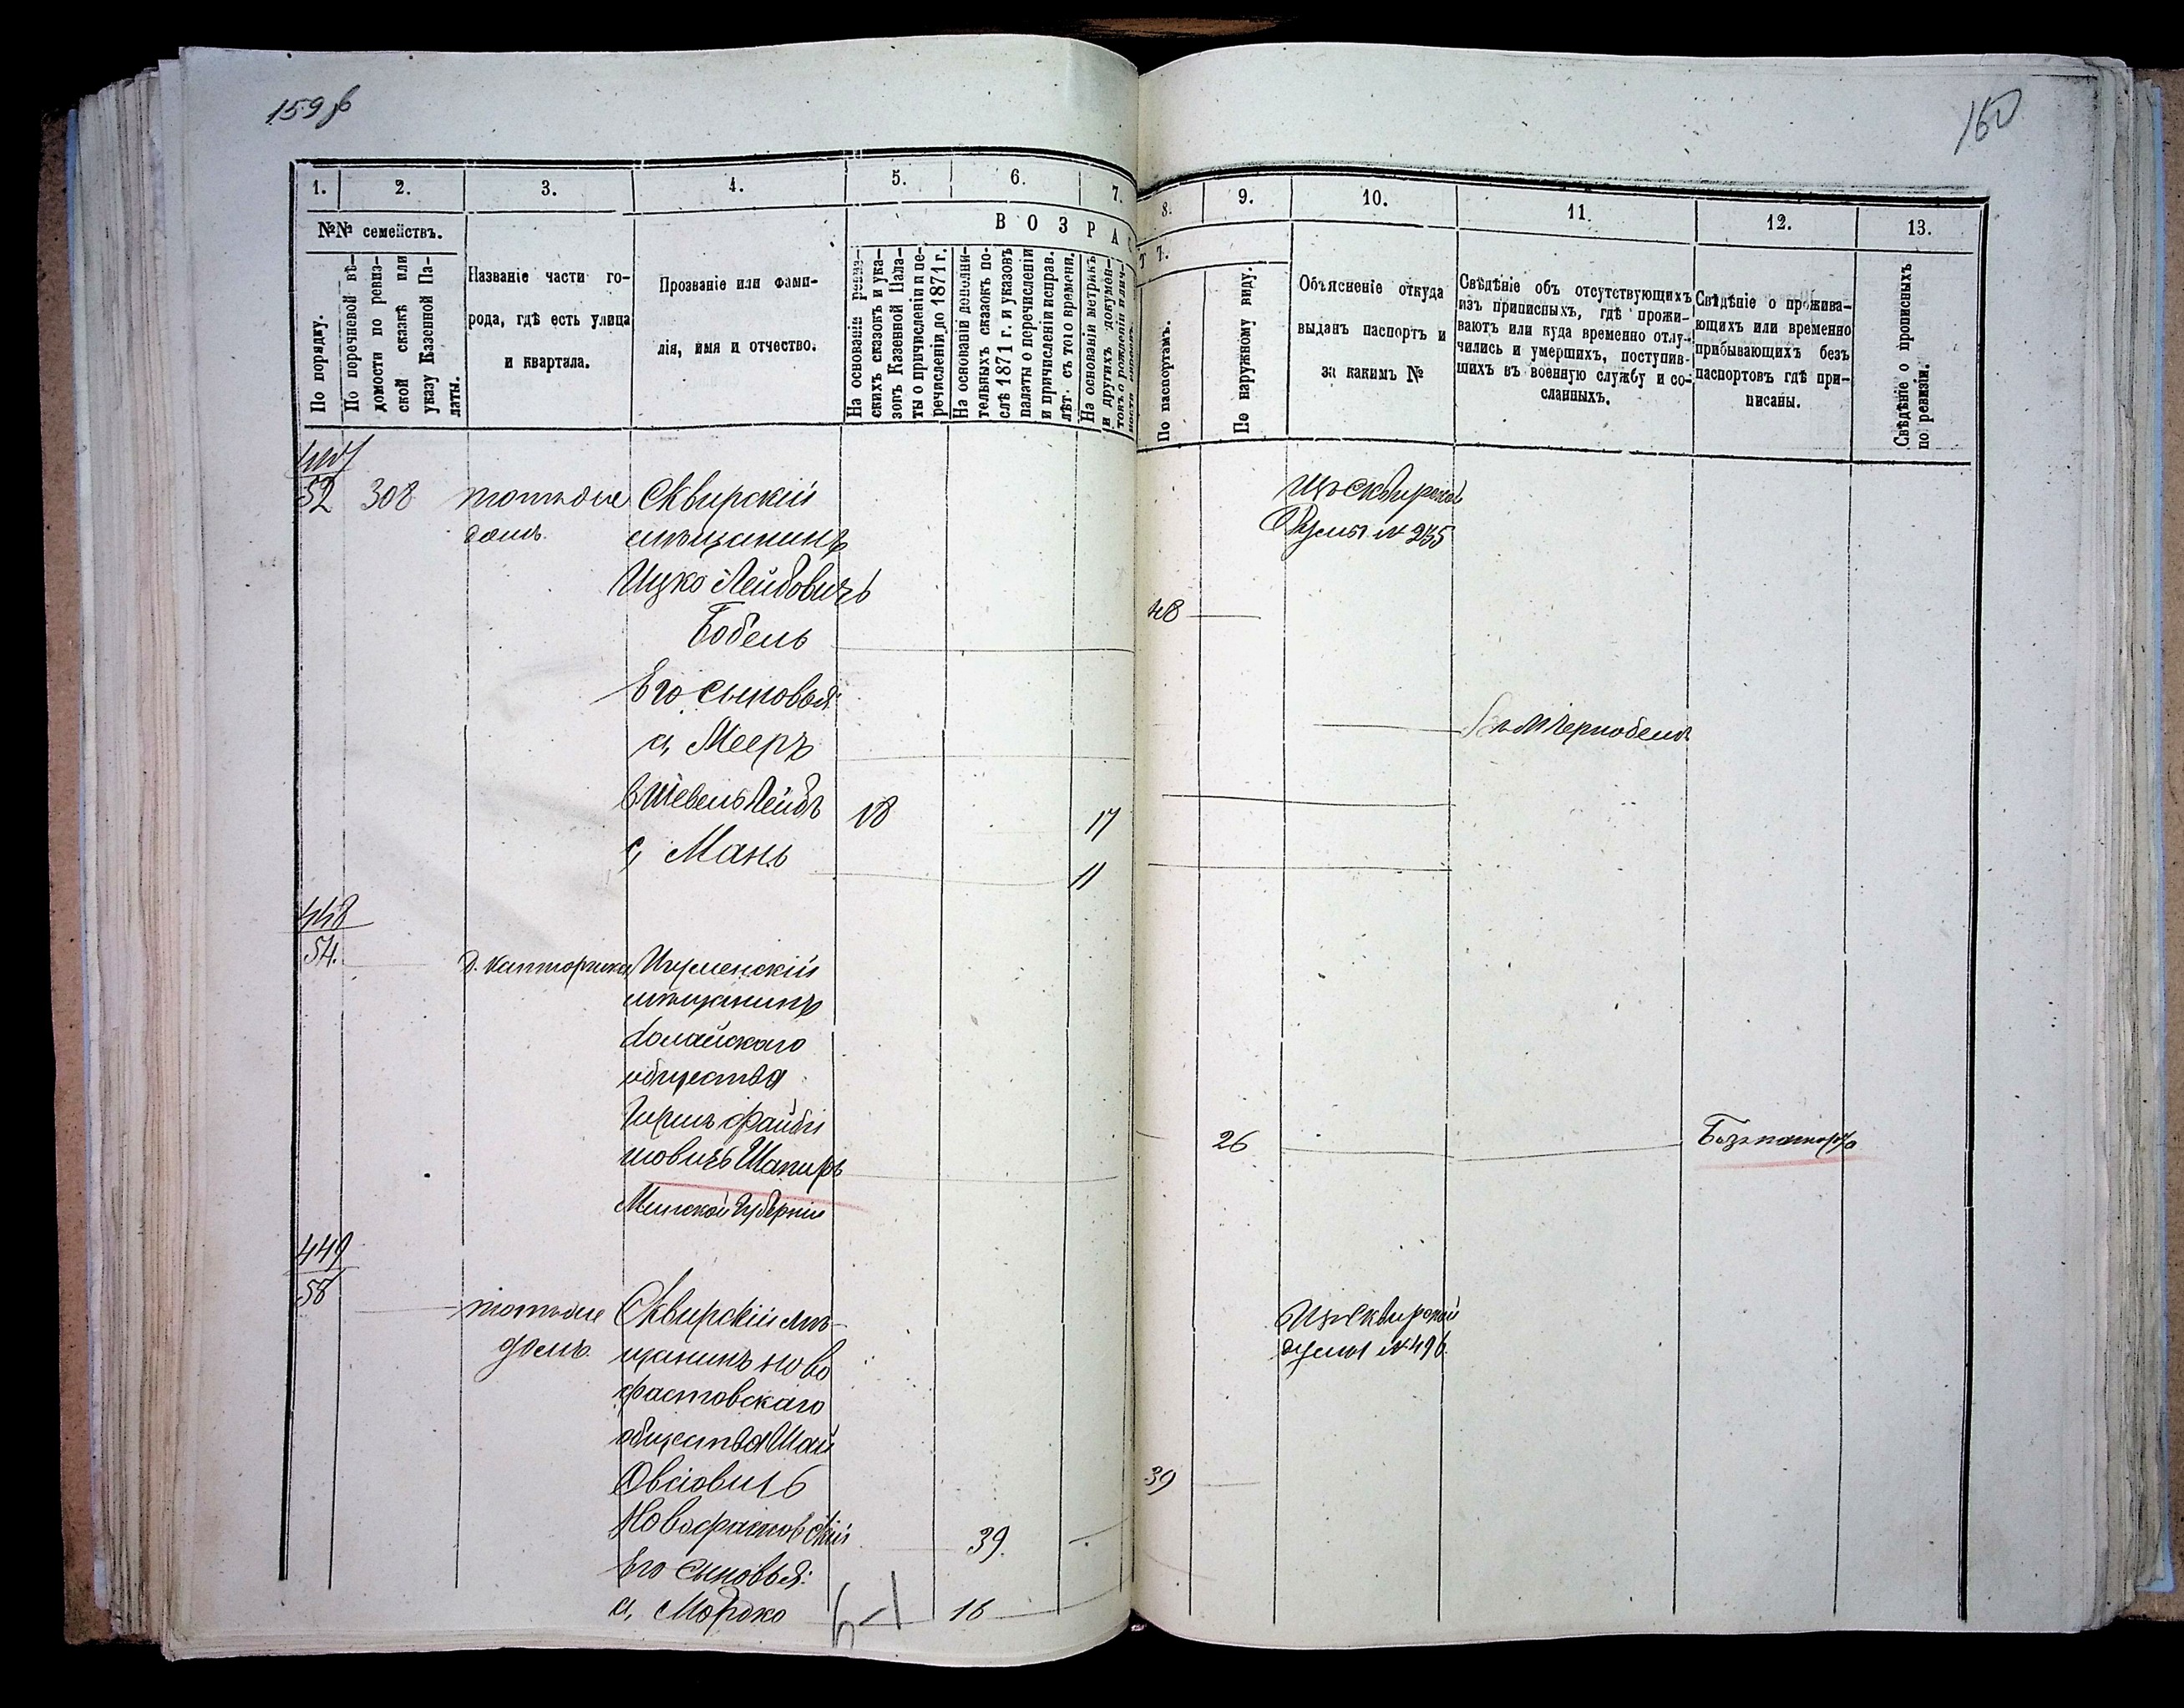 159 об
160
1.
2.
3.
4.
5.
6.
7.
8.
9.
10.
11.
12.
13.
№№ семействъ.
По порядку.
По поречневой вѣ-
домости по ревиз-
ской сказкѣ или
указу Казенной Па-
латы.
Названіе части го-
рода, гдѣ есть улица
и квартала.
Прозваніе или фами-
лія, имя и отчество.
В О З Р А С
Т Ъ.
На основаніи ревиз-
скихъ сказокъ и ука-
зовъ Казенной Пала-
ты о причисленіи и пе-
речисленіи до 1871 г.
На основаніи дополни-
тельныхъ сказокъ по-
слѣ 1871 г. и указовъ
палаты о перечисленіи
и причисленіи исправ.
лѣт. съ того времени.
На основаніи метрикъ
и другихъ докумен-
товъ о рожденіи
По паспортамъ.
По наружному виду.
Объясненіе откуда
выданъ паспортъ и
за какимъ №
Свѣдѣніе объ отсутствующихъ
изъ приписныхъ, гдѣ прожи-
ваютъ или куда временно отлу-
чились и умершихъ, поступив-
шихъ въ военную службу и со-
сланныхъ.
Свѣдѣніе о прожива-
ющихъ или временно
прибывающихъ безъ
паспортовъ гдѣ при-
писаны.
Свѣдѣніе о прописныхъ
по ревизіи.
447
52 308 тотъ же Сквирскій
домъ. мѣщанинъ
Ицко Лейбовичъ
Бобель
48
Изъ Сквирской
Думы № 235
Его сыновья:
а, Мееръ
Чернобыль
в Шевель Лейбъ 18 17
с, Мань 11
448
54. Игуменскій
мѣщанинъ
общества
Гиршъ Файби
шовичъ Шапиръ
26
Безъ паспорта
Минской Губерніи
449
58 тотъ же Сквирскій мѣ-
домъ. щанинъ ново
фастовскаго
общества Шай
Овсіовичъ
39
Изъ Сквирской
думы № 496
Новофастовскій 39.
Его сыновья:
а, Мордко 16